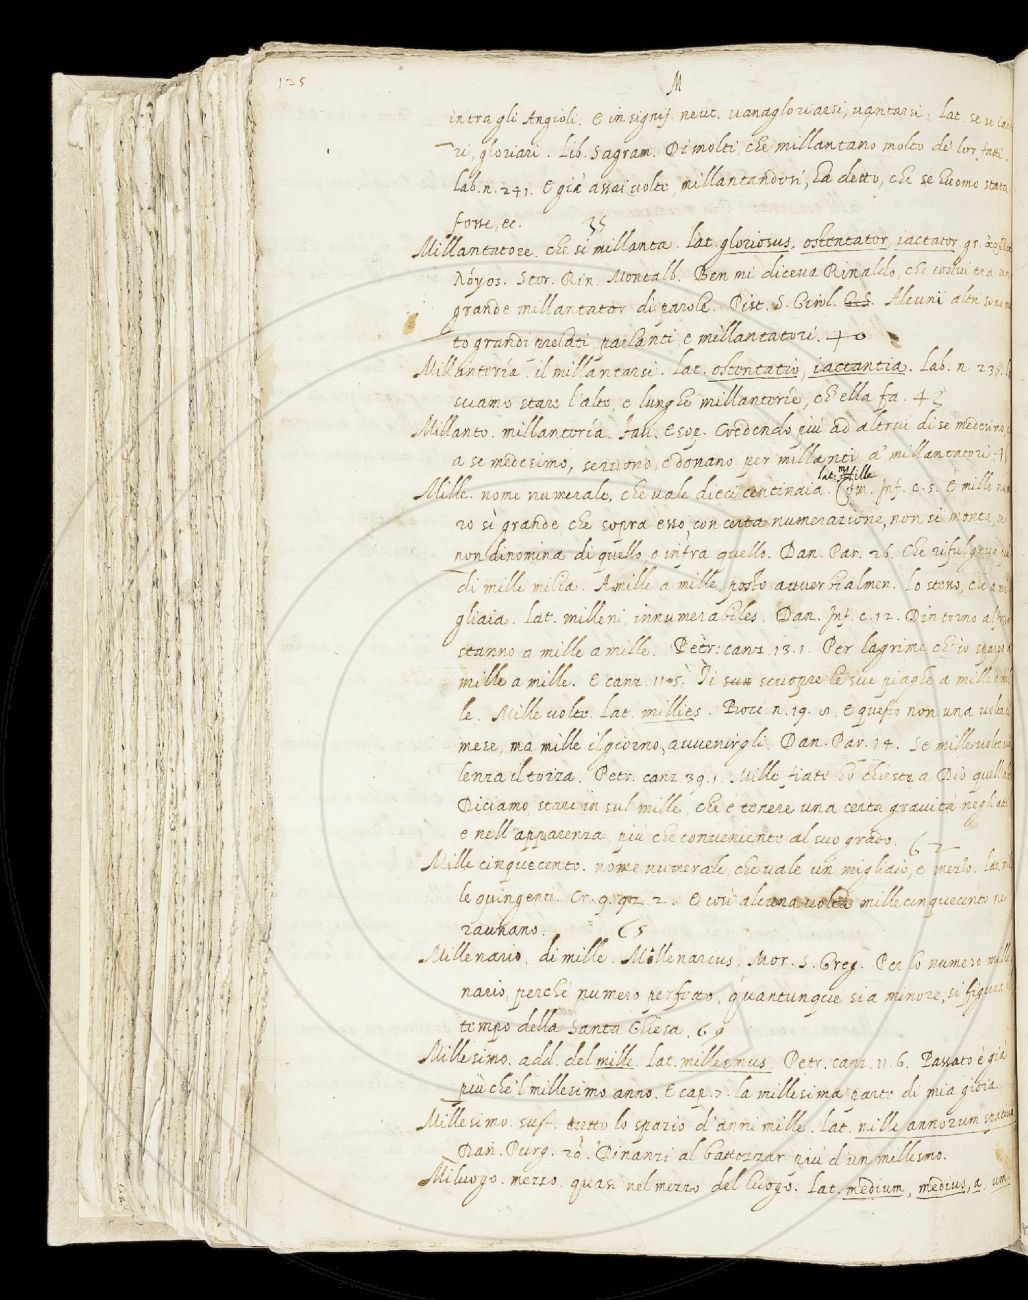 125
M
intra gli Angioli. E in signif. neut. vanagloriarsi, vantarsi. Lat. se se iac
ri, gloriari. Lib. Sagram. Di molti, che millantano molto de' lor fatti.
Lab. n. 241. E già assai volte, millantandosi, ha detto, che se huomo stata
fosse, ec. 35
Millantatore. che si millanta. Lat. gloriosus, ostentator, iactator, gr.
λόγος. Stor. Rin. Montalb. Ben mi diceva Rinaldo, che costui era un
grande millantator di parole. Pist. S. Girol. Alcuni altri sono
to grandi prelati, parlanti, e millantatori. 40
Millanteria. il millantarsi. Lat. ostentatio, iactantia. Lab. n. 237.
stare l'alte, e lunghe millanterie, ch'ella fa. 43
Millanto. millanteria. Fav. Esop. Credendo più ad altrui di se medesimo,
a se medesimo, servono, e donano per millanti a' millantatori
lat. Mille
Mille. nome numerale, che vale dieci centinaia. Com. Inf. c. 5. E mille
ro sì grande, che sopra esso con certa numerazione, non si monta,
non dinomina di quello, o infra quello. Dan. Par. 26. Che rifulgeva
di mille milia. A mille a mille, posto avverbialmen. lo stesso, che a mi
gliaia. Lat. milleni, innumerabiles. Dan. Inf. c. 12. Dintorno al fosso
stanno a mille a mille. Petr. canz. 13. 1. Per lagrime, ch'io spargo a
mille a mille. E canz. scuopre le sue piaghe a mille a mil
le. Mille volte. Lat. millies. Bocc. n. 19. 8. E questo non una volta il
mese, ma mille il giorno, avvenirgli. Dan. Par. 14. Se mille volte vio
lenza il torza. Petr. canz. 39. 1. Mille fiate ho chieste a Dio quell' ale
Diciamo, stare in sul mille, che è tenere una certa gravità negli atti,
e nell'apparenza, più che conveniente al suo grado. 62
Mille cinquecento. nome numerale, che vale un migliaio, e mezzo. Lat. mil
le quingenti. Cr. 9. 92. 2. E così alcuna volta mille cinquecento ne
raunano. 65
Millenario. di mille. Millenarius. Mor. S. Greg. Per lo numero mille
nario, perchè numero perfetto, quantunque sia minore, si figura il
tempo della Santa Chiesa. 69
Millesimo. add. del mille. Lat. millesimus. Petr. canz. 11. 6. Passato è già
più che 'l millesimo anno. E cap. 7. la millesima parte di mia gioia.
Millesimo. sust. tutto lo spazio d'anni mille. lat. mille annorum spacium
Dan. Purg. 20. Dinanzi al battezzar più d'un millesmo.
Miluogo. mezzo. quasi nel mezzo del luogo. Lat. medium, medius, a, um.